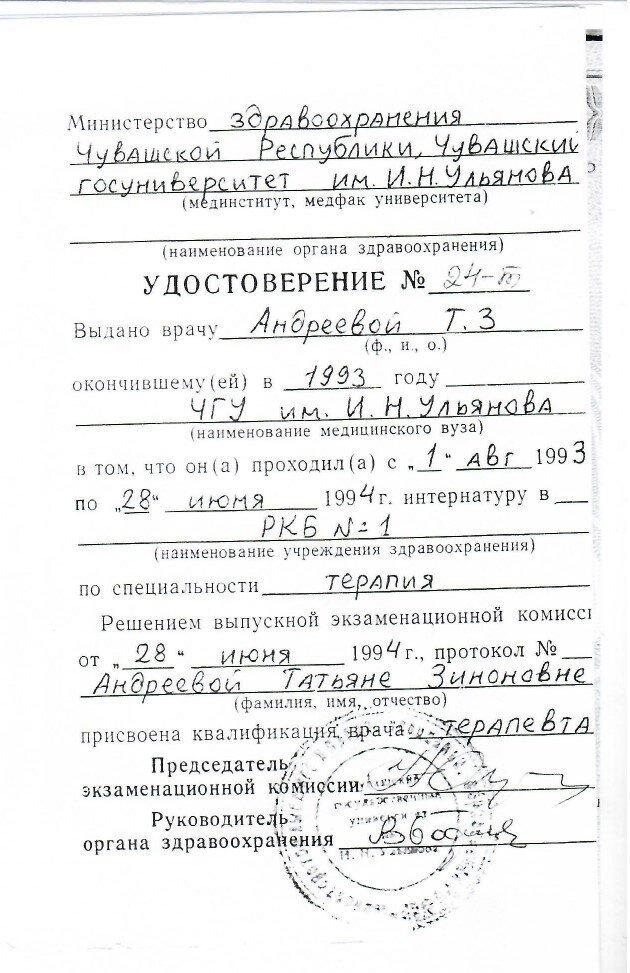 Министерство здравоохранения
Чувашской Республики, Чувашский
госуниверситет им. И.Н. Ульянова
(мединститут, медфак университета)
(наименование органа здравоохранения)
УДОСТОВЕРЕНИЕ № 24-
Выдано врачу Андреевой Т. З
(ф., и., о.)
окончившему(ей) в 1993 году
ЧГУ им. И. Н. Ульянова
(наименование медицинского вуза)
в том, что он(а) проходил(а) с „1“ авг 1993
по „28“ июня 1994 г. интернатуру в
РКБ № 1
(наименование учреждения здравоохранения)
по специальности терапия
Решением выпускной экзаменационной комисси
от „28“ июня 1994 г., протокол №
Андреевой Татьяне Зиноновне
(фамилия, имя, отчество)
присвоена квалификация врача терапевта
Председатель
экзаменационной комиссии
Руководитель
органа здравоохранения